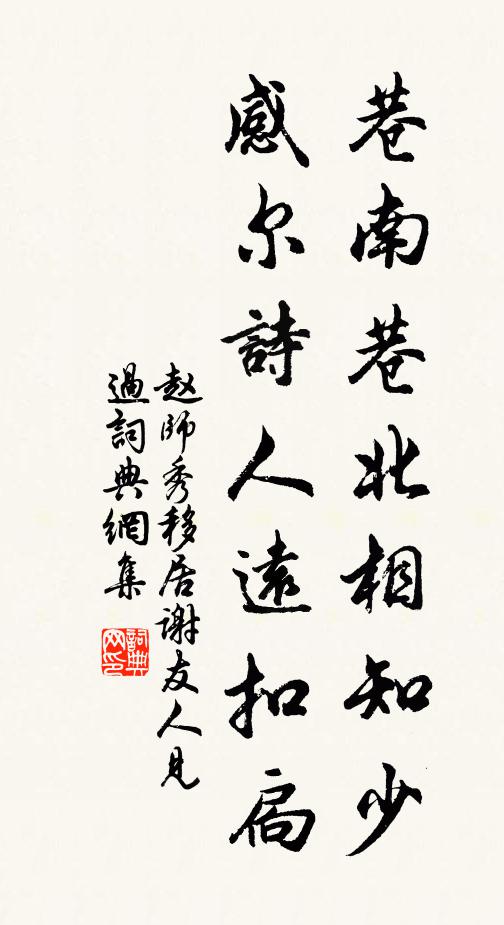 巷南巷北相知少
感尔詩人遠扣扄
赵師秀移居謝友人見
過詞典網集
詞典
网印